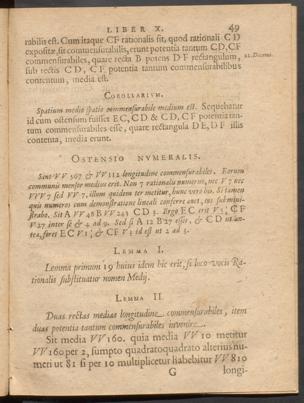 LIBER X. 49
rabilis est. Cum itaque CF rationalis sit, quod rationali CD
expositæ sit commensurabilis, erunt potentia tantum CD, CF
commensurabiles, quare recta B potens DF rectangulum,
sub rectis CD, CF potentia tantum commensurabilibus
contentum, media est.
COROLLARIVM.
Spatium medio spatio commensurabile medium est. Sequebatur
id cum ostensum fuisset EC, CD & CD, CF potentia tan-
tum commensurabiles esse, quare rectangula DE, DF illis
contenta, media erunt.
OSTENSIO NVMERALIS.
Sint VV 567 & VV 112 longitudine commensurabiles. Earum
communis mensor medius erit. Non 7 rationalis numerus, nec V 7 nec
VVV 7 sed VV 7, illum quidem ter metitur, hunc vero bis. Si tamen
quis numeros cum demonstratione lineali conferre avet, ius submini-
strabo. Sit A VV 48 B VV 243 CD 3. Ergo EC erit V
CF
V 27 inter se & 4 ad 9. Sed si A 12 B 27 esset, & CD ut an-
tea, foret EC V
& CF V
id est ut 2 ad 3.
LEMMA I.
Lemma primum 19 huius idem hic erit, si loco vocis Ra-
tionalis substituatur nomen Medij.
LEMMA II.
Duas rectas medias longitudine commensurabiles, item
duas potentia tantum commensurabiles invenire.
Sit media VV 160. quia media VV 10 metitur
VV 160 per 2, sumpto quadratoquadrato alterius nu-
meri ut 81 si per 10 multiplicetur habebitur VV 810
G longi-